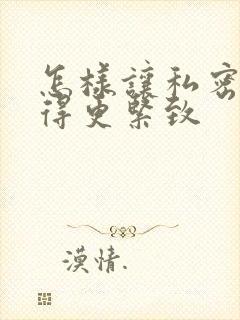 怎樣讓私密
得更緊致
漠情.